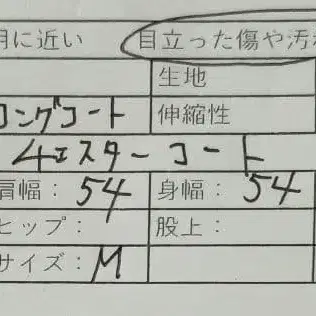 用に近い 目立った傷や汚れ
生地
ロングコート 伸縮性
チェスターコート
肩幅: 54 身幅: 54
ヒップ: 股上:
サイズ: M